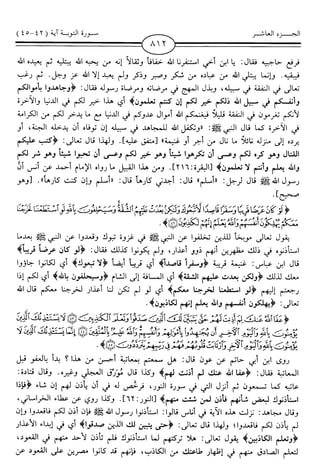 الجزء العاشر
٨١٢
سورة التوبة آية (٤٢-٤٥)
فرفع حاجبيه فقال: يا ابن أخي استنفرنا الله خفافاً وثقالاً إنه من يحبه الله يبتليه ثم يعيده الله
فيبقيه. وإنما يبتلي الله من عباده من شكر وصبر وذكر ولم يعبد إلا الله عز وجل. ثم رغب
تعالى في النفقة في سبيله، وبذل المهج في مرضاته ومرضاة رسوله فقال: ﴿وجاهدوا بأموالكم
وأنفسكم في سبيل الله ذلكم خير لكم إن كنتم تعلمون﴾ أي هذا خير لكم في الدنيا والآخرة
لأنكم تغرمون في النفقة قليلاً فيغنمكم الله أموال عدوكم في الدنيا مع ما يدخر لكم من الكرامة
في الآخرة كما قال النبي ﷺ: «وتكفل الله للمجاهد في سبيله إن توفاه أن يدخله الجنة، أو
يرده إلى منزله نائلاً ما نال من أجر أو غنيمة» [متفق عليه]. ولهذا قال تعالى: ﴿كتب عليكم
القتال وهو كره لكم وعسى أن تكرهوا شيئاً وهو خير لكم وعسى أن تحبوا شيئاً وهو شر لكم
والله يعلم وأنتم لا تعلمون﴾ [البقرة:٢١٦]. ومن هذا القبيل ما رواه الإمام أحمد عن أنس أن
رسول الله ﷺ قال لرجل: «أسلم» قال: أجدني كارهاً قال: «أسلم وإن كنت كارهاً». [وهو
صحيح].
لَوْ كَانَ عَرَضًا قَرِيبًا وَسَفَرًا قَاصِدًا لَاتَّبَعُوكَ وَلَكِنْ بَعُدَتْ عَلَيْهِمُ الشُّقَّةُ وَسَيَحْلِفُونَ بِاللَّهِ لَوِ اسْتَطَعْنَا لَخَرَجْنَا
مَعَكُمْ يُهْلِكُونَ أَنْفُسَهُمْ وَاللَّهُ يَعْلَمُ إِنَّهُمْ لَكَاذِبُونَ
يقول تعالى موبخاً للذين تخلفوا عن النبي ﷺ في غزوة تبوك وقعدوا عن النبي ﷺ بعدما
استأذنوه في ذلك مظهرين أنهم ذوو أعذار، ولم يكونوا كذلك فقال: ﴿لو كان عرضاً قريباً﴾
قال ابن عباس: غنيمة قريبة ﴿وسفراً قاصداً﴾ أي قريباً أيضاً ﴿لاتبعوك﴾ أي لكانوا جاؤوا
معك لذلك ﴿ولكن بعدت عليهم الشقة﴾ أي المسافة إلى الشام ﴿وسيحلفون بالله﴾ أي لكم إذا
رجعتم إليهم ﴿لو استطعنا لخرجنا معكم﴾ أي لو لم تكن لنا أعذار لخرجنا معكم قال الله
تعالى: ﴿يهلكون أنفسهم والله يعلم إنهم لكاذبون﴾.
عَفَا اللَّهُ عَنْكَ لِمَ أَذِنْتَ لَهُمْ حَتَّى يَتَبَيَّنَ لَكَ الَّذِينَ صَدَقُوا وَتَعْلَمَ الْكَاذِبِينَ لَا يَسْتَأْذِنُكَ الَّذِينَ
يُؤْمِنُونَ بِاللَّهِ وَالْيَوْمِ الْآخِرِ أَنْ يُجَاهِدُوا بِأَمْوَالِهِمْ وَأَنْفُسِهِمْ وَاللَّهُ عَلِيمٌ بِالْمُتَّقِينَ إِنَّمَا يَسْتَأْذِنُكَ الَّذِينَ لَا
يُؤْمِنُونَ بِاللَّهِ وَالْيَوْمِ الْآخِرِ وَارْتَابَتْ قُلُوبُهُمْ فَهُمْ فِي رَيْبِهِمْ يَتَرَدَّدُونَ
روى ابن أبي حاتم عن عون قال: هل سمعتم بمعاتبة أحسن من هذا؟ بدأ بالعفو قبل
المعاتبة فقال: ﴿عفا الله عنك لم أذنت لهم﴾ وكذا قال مُورّق العجلي وغيره. وقال قتادة:
عاتبه كما تسمعون ثم أنزل التي في سورة النور، فرخّص له في أن يأذن لهم إن شاء ﴿فإذا
استأذنوك لبعض شأنهم فأذن لمن شئت منهم﴾ [النور:٦٢]. وكذا روي عن عطاء الخراساني،
وقال مجاهد: نزلت هذه الآية في أناس قالوا: استأذنوا رسول الله ﷺ فإن أذن لكم فاقعدوا وإن
لم يأذن لكم فاقعدوا؛ ولهذا قال تعالى: ﴿حتى يتبين لك الذين صدقوا﴾ أي في إبداء الأعذار
﴿وتعلم الكاذبين﴾ يقول تعالى: هلا تركتهم لما استأذنوك فلم تأذن لأحد منهم في القعود،
لتعلم الصادق منهم في إظهار طاعتك من الكاذب، فإنهم قد كانوا مصرين على القعود عن